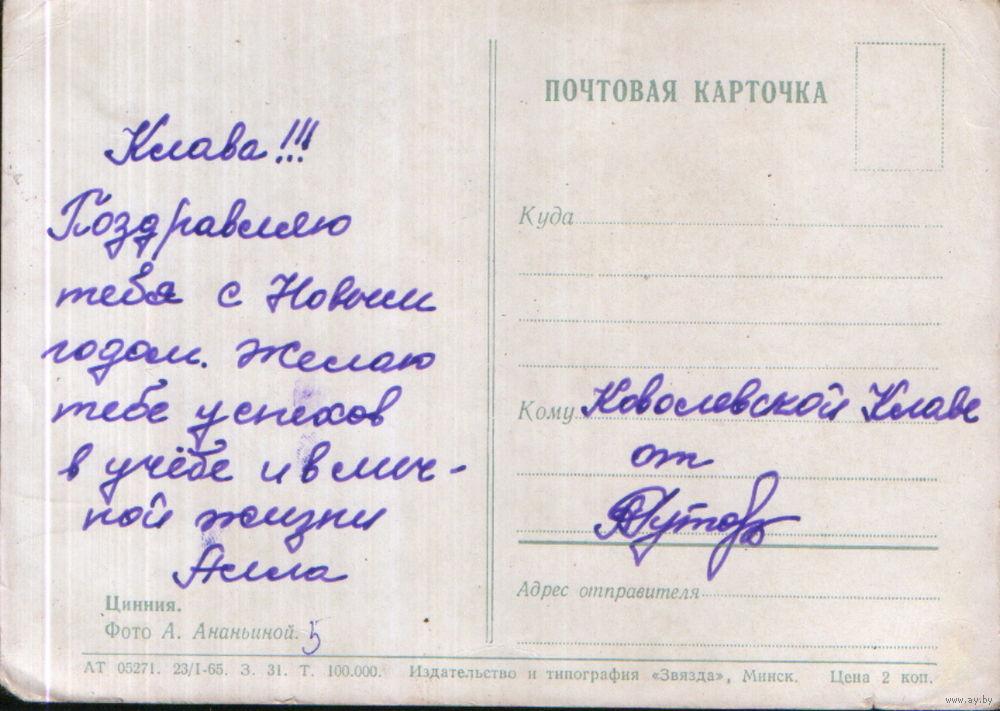 Клава!!!
Поздравляю
тебя с Новым
годом. Желаю
тебе успехов
в учёбе и в лич-
ной жизни
Алла
Цинния.
Фото А. Ананьиной. 5
ПОЧТОВАЯ КАРТОЧКА
Куда
Кому Коволевской Клаве
от
Адрес отправителя
АТ 05271. 23/I-65. З. 31. Т. 100.000. Издательство и типография «Звязда», Минск. Цена 2 коп.
www.ay.by